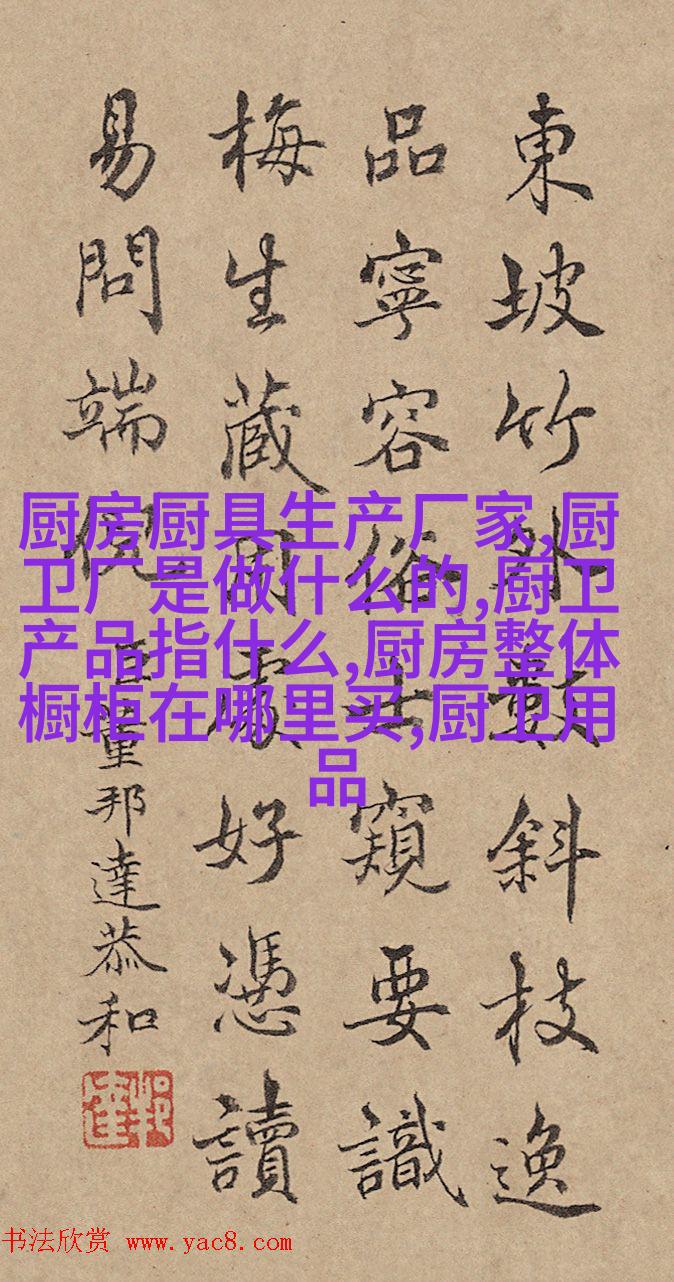 東坡竹外數斜枝逸
品寧容俗士窺要識
梅生藏用處好憑讀
易問端倪
臣董邦達恭和
厨房厨具生产厂家,厨
卫厂是做什么的,厨卫
产品指什么,厨房整体
橱柜在哪里买,厨卫用
品
书法欣赏 www.yac8.com